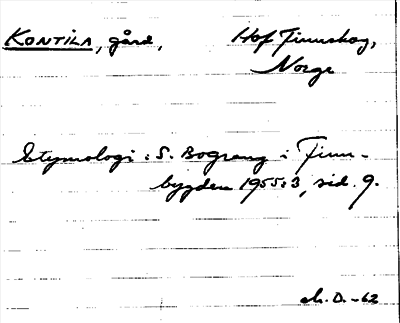 KONTILA, gård, Hof Finnskog,
Norge
Etymologi: S. Bograng i Finn-
bygden 1955:3, sid. 9.
M.D. -62